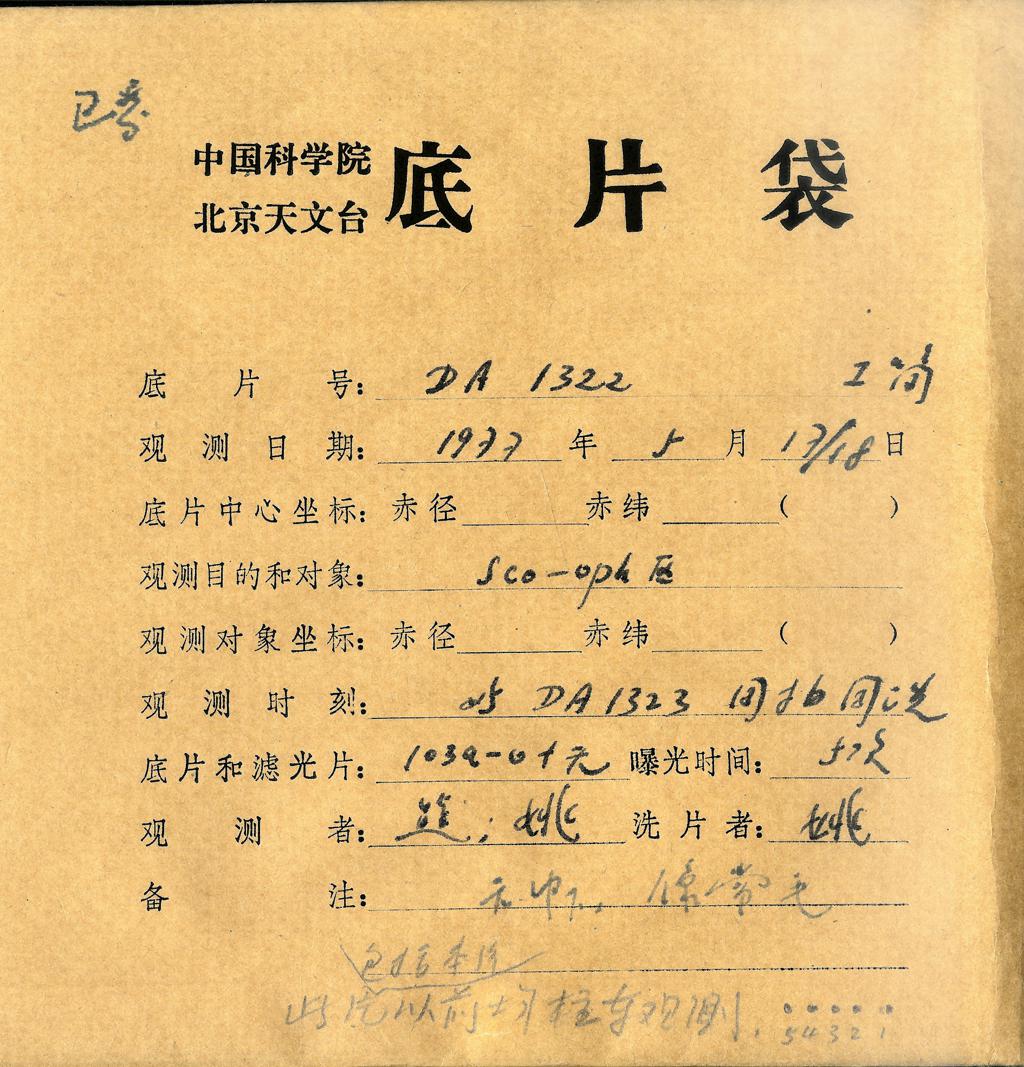 中国科学院
北京天文台 底片袋
底片号: DA 1322
观测日期: 1977 年 5 月 17/18 日
底片中心坐标: 赤径 赤纬 ( )
观测目的和对象: Sco-oph 区
观测对象坐标: 赤径 赤纬 ( )
观测时刻: 与 DA1323 同拍同洗
底片和滤光片: 103a-0+无 曝光时间: 5次
观测者: 熊; 姚 洗片者: 姚
备注:
包括本片
此片以前均 观测.
5 4 3 2 1